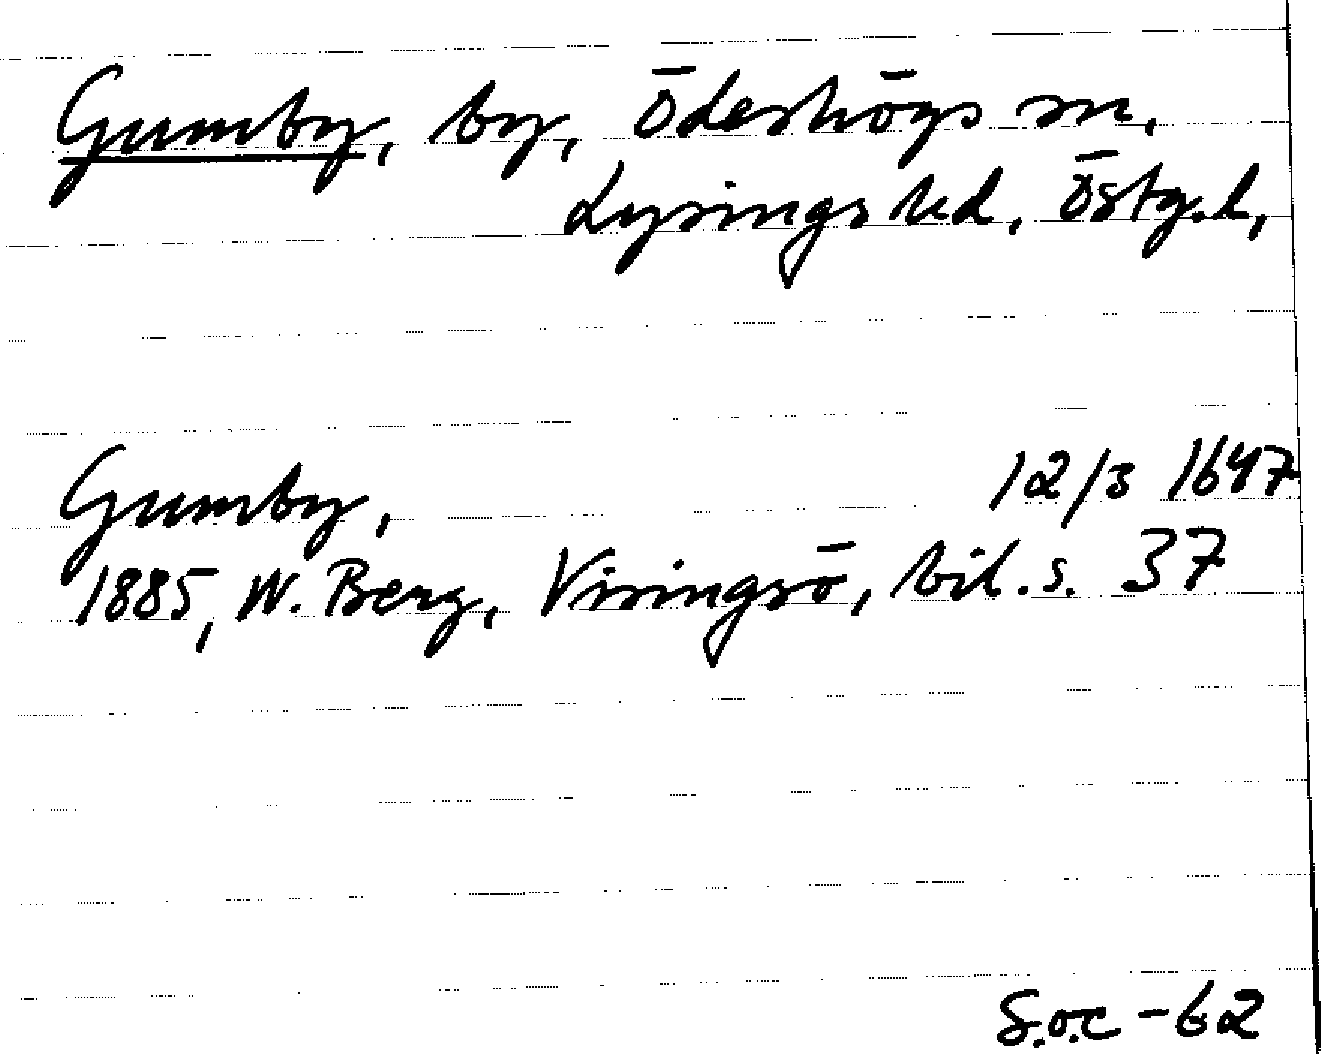 Gumby, by, Ödeshögs sn,
Lysings hd, Östg.l,
Gumby, 12/3 1647
1885, W. Berg, Visingsö, bil. s. 37
S.O.C -62